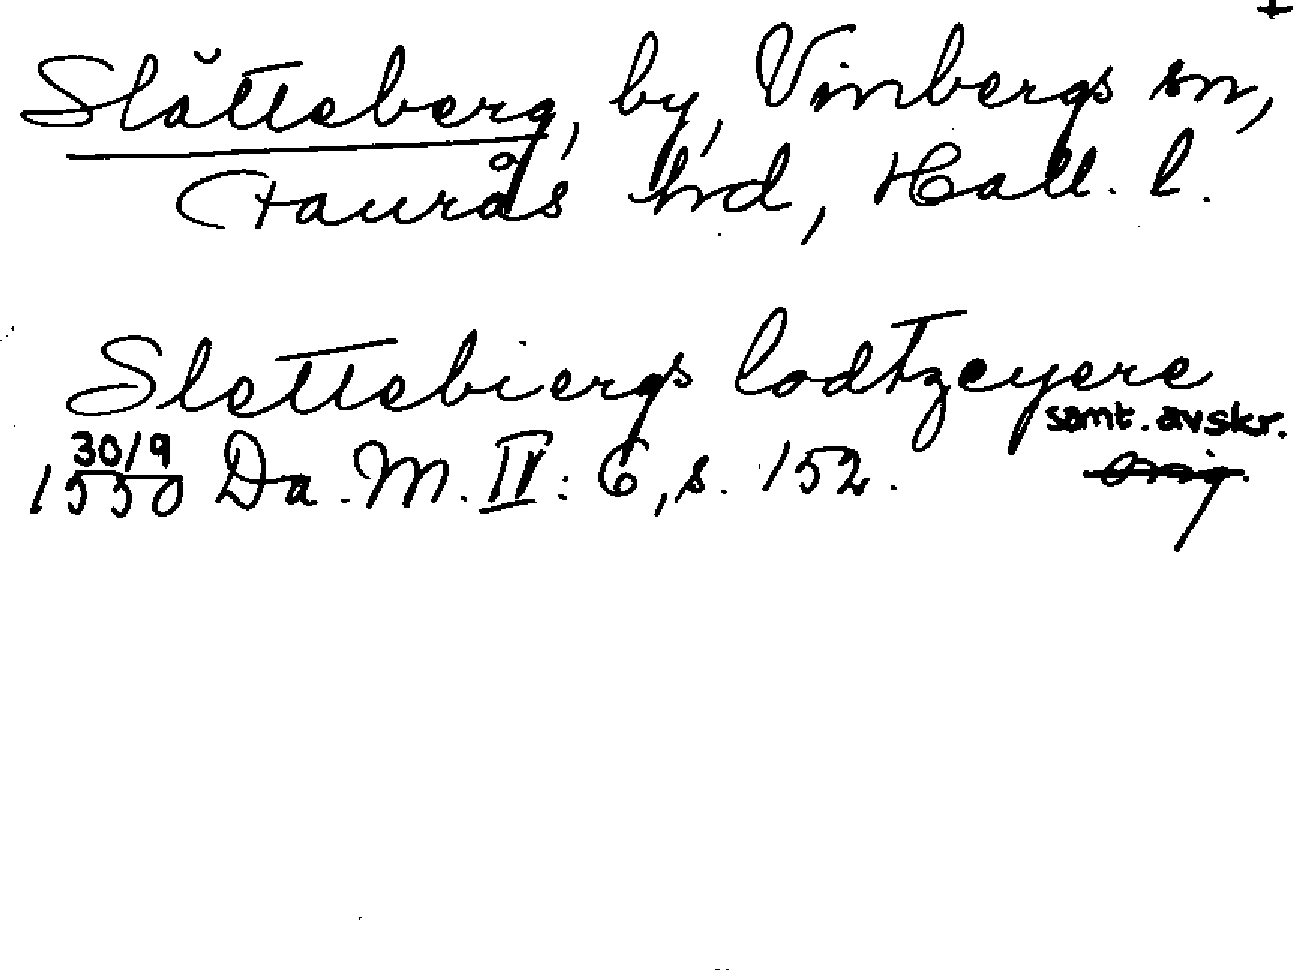 Slätteberg, by, Vinbergs sn,
Faurås hd, Hall. l.
Slettebiergs lodtzeyere
samt. avskr.
30/9
1550 Da. M. IV: 6, s. 152. orig.